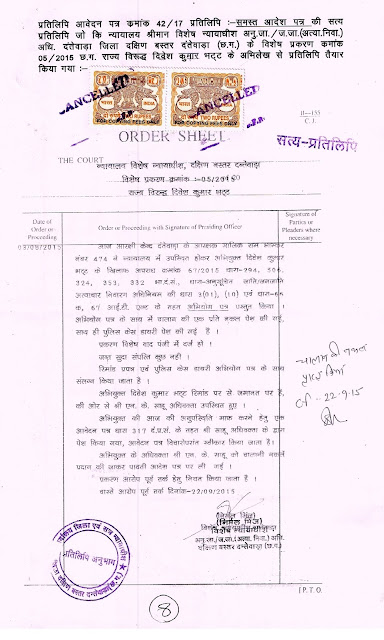 प्रतिलिपि आवेदन पत्र कमांक 42/17 प्रतिलिपि :-समस्त आदेश पत्र की सत्य
प्रतिलिपि जो कि न्यायालय श्रीमान विशेष न्यायाधीश अनु.जा./ज.जा.(अत्या.निवा.)
अधि. दंतेवाड़ा जिला दक्षिण बस्तर दंतेवाड़ा (छ.ग.) के विशेष प्रकरण कमांक
05/2015 छ.ग. राज्य विरूद्ध दिवेश कुमार भट्ट के अभिलेख से प्रतिलिपि तैयार
किया गया :-
CANCELLED
CANCELLED
FOR COPYING FEES ONLY
FOR COPYING FEES ONLY
II-155
C. J.
ORDER SHEET
सत्य-प्रतिलिपि
THE COURT
न्यायालय विशेष न्यायाधीश, दक्षिण बस्तर दन्तेवाड़ा
विशेष प्रकरण क्रमांक:-05/2015
राज्य विरुद्ध दिवेश कुमार भट्ट
Date of Order or Proceeding
Order or Proceeding with Signature of Presiding Officer
Signature of Parties or Pleaders where necessary
03/09/2015
नंबर 474 ने न्यायालय में उपस्थित होकर अभियुक्त दिवेश कुमार
भट्ट के खिलाफ अपराध क्रमांक 67/2015 धारा-294, 506,
324, 353, 332 भा.दं.सं., धारा-अनुसूचित जाति/जनजाति
अत्याचार निवारण अधिनियम की धारा 3(01), (10) एवं धारा-66
क, 67 आई.टी. एक्ट के तहत अभियोग पत्र प्रस्तुत किया ।
अभियोग पत्र के साथ में चालान की एक प्रति नकल पेश की गई,
साथ ही पुलिस केस डायरी पेश की गई है ।
प्रकरण विशेष वाद पंजी में दर्ज हो ।
जप्त सुदा संपत्ति कुछ नहीं ।
रिमांड प्रपत्र एवं पुलिस केस डायरी अभियोग पत्र के साथ
संलग्न किया जाता है ।
अभियुक्त दिवेश कुमार भट्ट रिमांड पर से जमानत पर है,
की ओर से श्री एन. के. साहू अधिवक्ता उपस्थित हुए ।
अभियुक्त की आज की अनुपस्थिति माफ करने हेतु एक
आवेदन पत्र धारा 317 दं.प्र.सं. के तहत श्री साहू अधिवक्ता के द्वारा
पेश किया गया, आवेदन पत्र विचारोपरांत स्वीकार किया जाता है।
अभियुक्त के अधिवक्ता श्री एन. के. साहू को चालानी नकल
प्रदान की जाकर पावती आदेश पत्र पर ली गई ।
प्रकरण आरोप पूर्व तर्क हेतु नियत किया जाता है ।
वास्ते आरोप पूर्व तर्क दिनांक-22/09/2015
चालान की नकल
प्राप्त किया
22-9-15
(निर्मल मिंज)
विशेष न्यायाधीश
अनु.जा./ज.जा.(अत्या. निवा.) अधि.
दक्षिण बस्तर दन्तेवाड़ा (छ.ग.)
प्रतिलिपि अनुभाग
8
P.T.O.